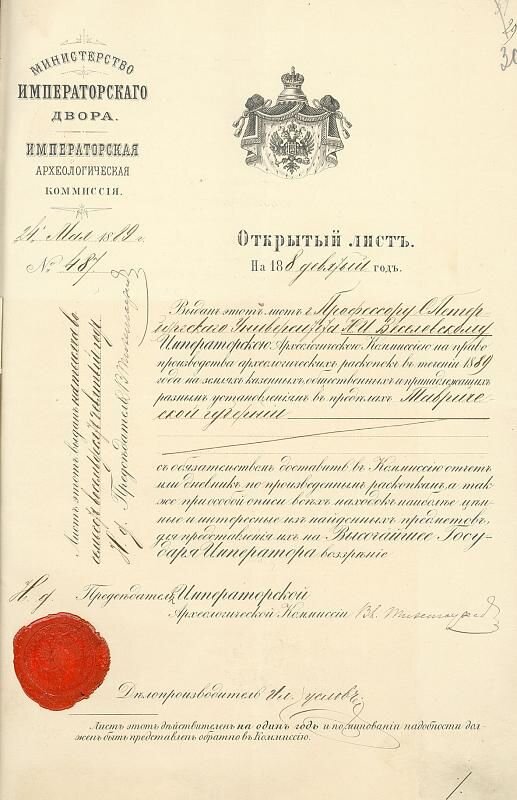 МИНИСТЕРСТВО
ИМПЕРАТОРСКАГО
ДВОРА.
ИМПЕРАТОРСКАЯ
АРХЕОЛОГИЧЕСКАЯ
КОММИССІЯ.
24 Мая 1889 г.
№ 487
Открытый листъ.
На 188 девятый годъ.
Выданъ этотъ листъ г. Профессору С. Петер-
бургскаго Университета Н. И. Веселовскому
Императорскою Археологическою Коммиссіею на право
производства археологическихъ раскопокъ въ теченіи 1889
года на земляхъ казенныхъ, общественныхъ и принадлежащихъ
разнымъ установленіямъ въ предѣлахъ Тавриче-
ской губерніи
съ обязательствомъ доставить въ Коммиссію отчетъ
или дневникъ по произведеннымъ раскопкамъ, а так-
же при особой описи всѣхъ находокъ наиболѣе цѣн-
ные и интересные изъ найденныхъ предметовъ,
для представленія ихъ на Высочайшее Госу-
даря Императора воззрѣніе
Листъ этотъ выданъ
И. д. Предсѣдателя В. Тизенгаузенъ
И. д. Предсѣдателя Императорской
Археологической Коммиссіи В. Тизенгаузенъ
Дѣлопроизводитель
Листъ этотъ дѣйствителенъ на одинъ годъ и по минованіи надобности дол-
женъ быть представленъ обратно въ Коммиссію.